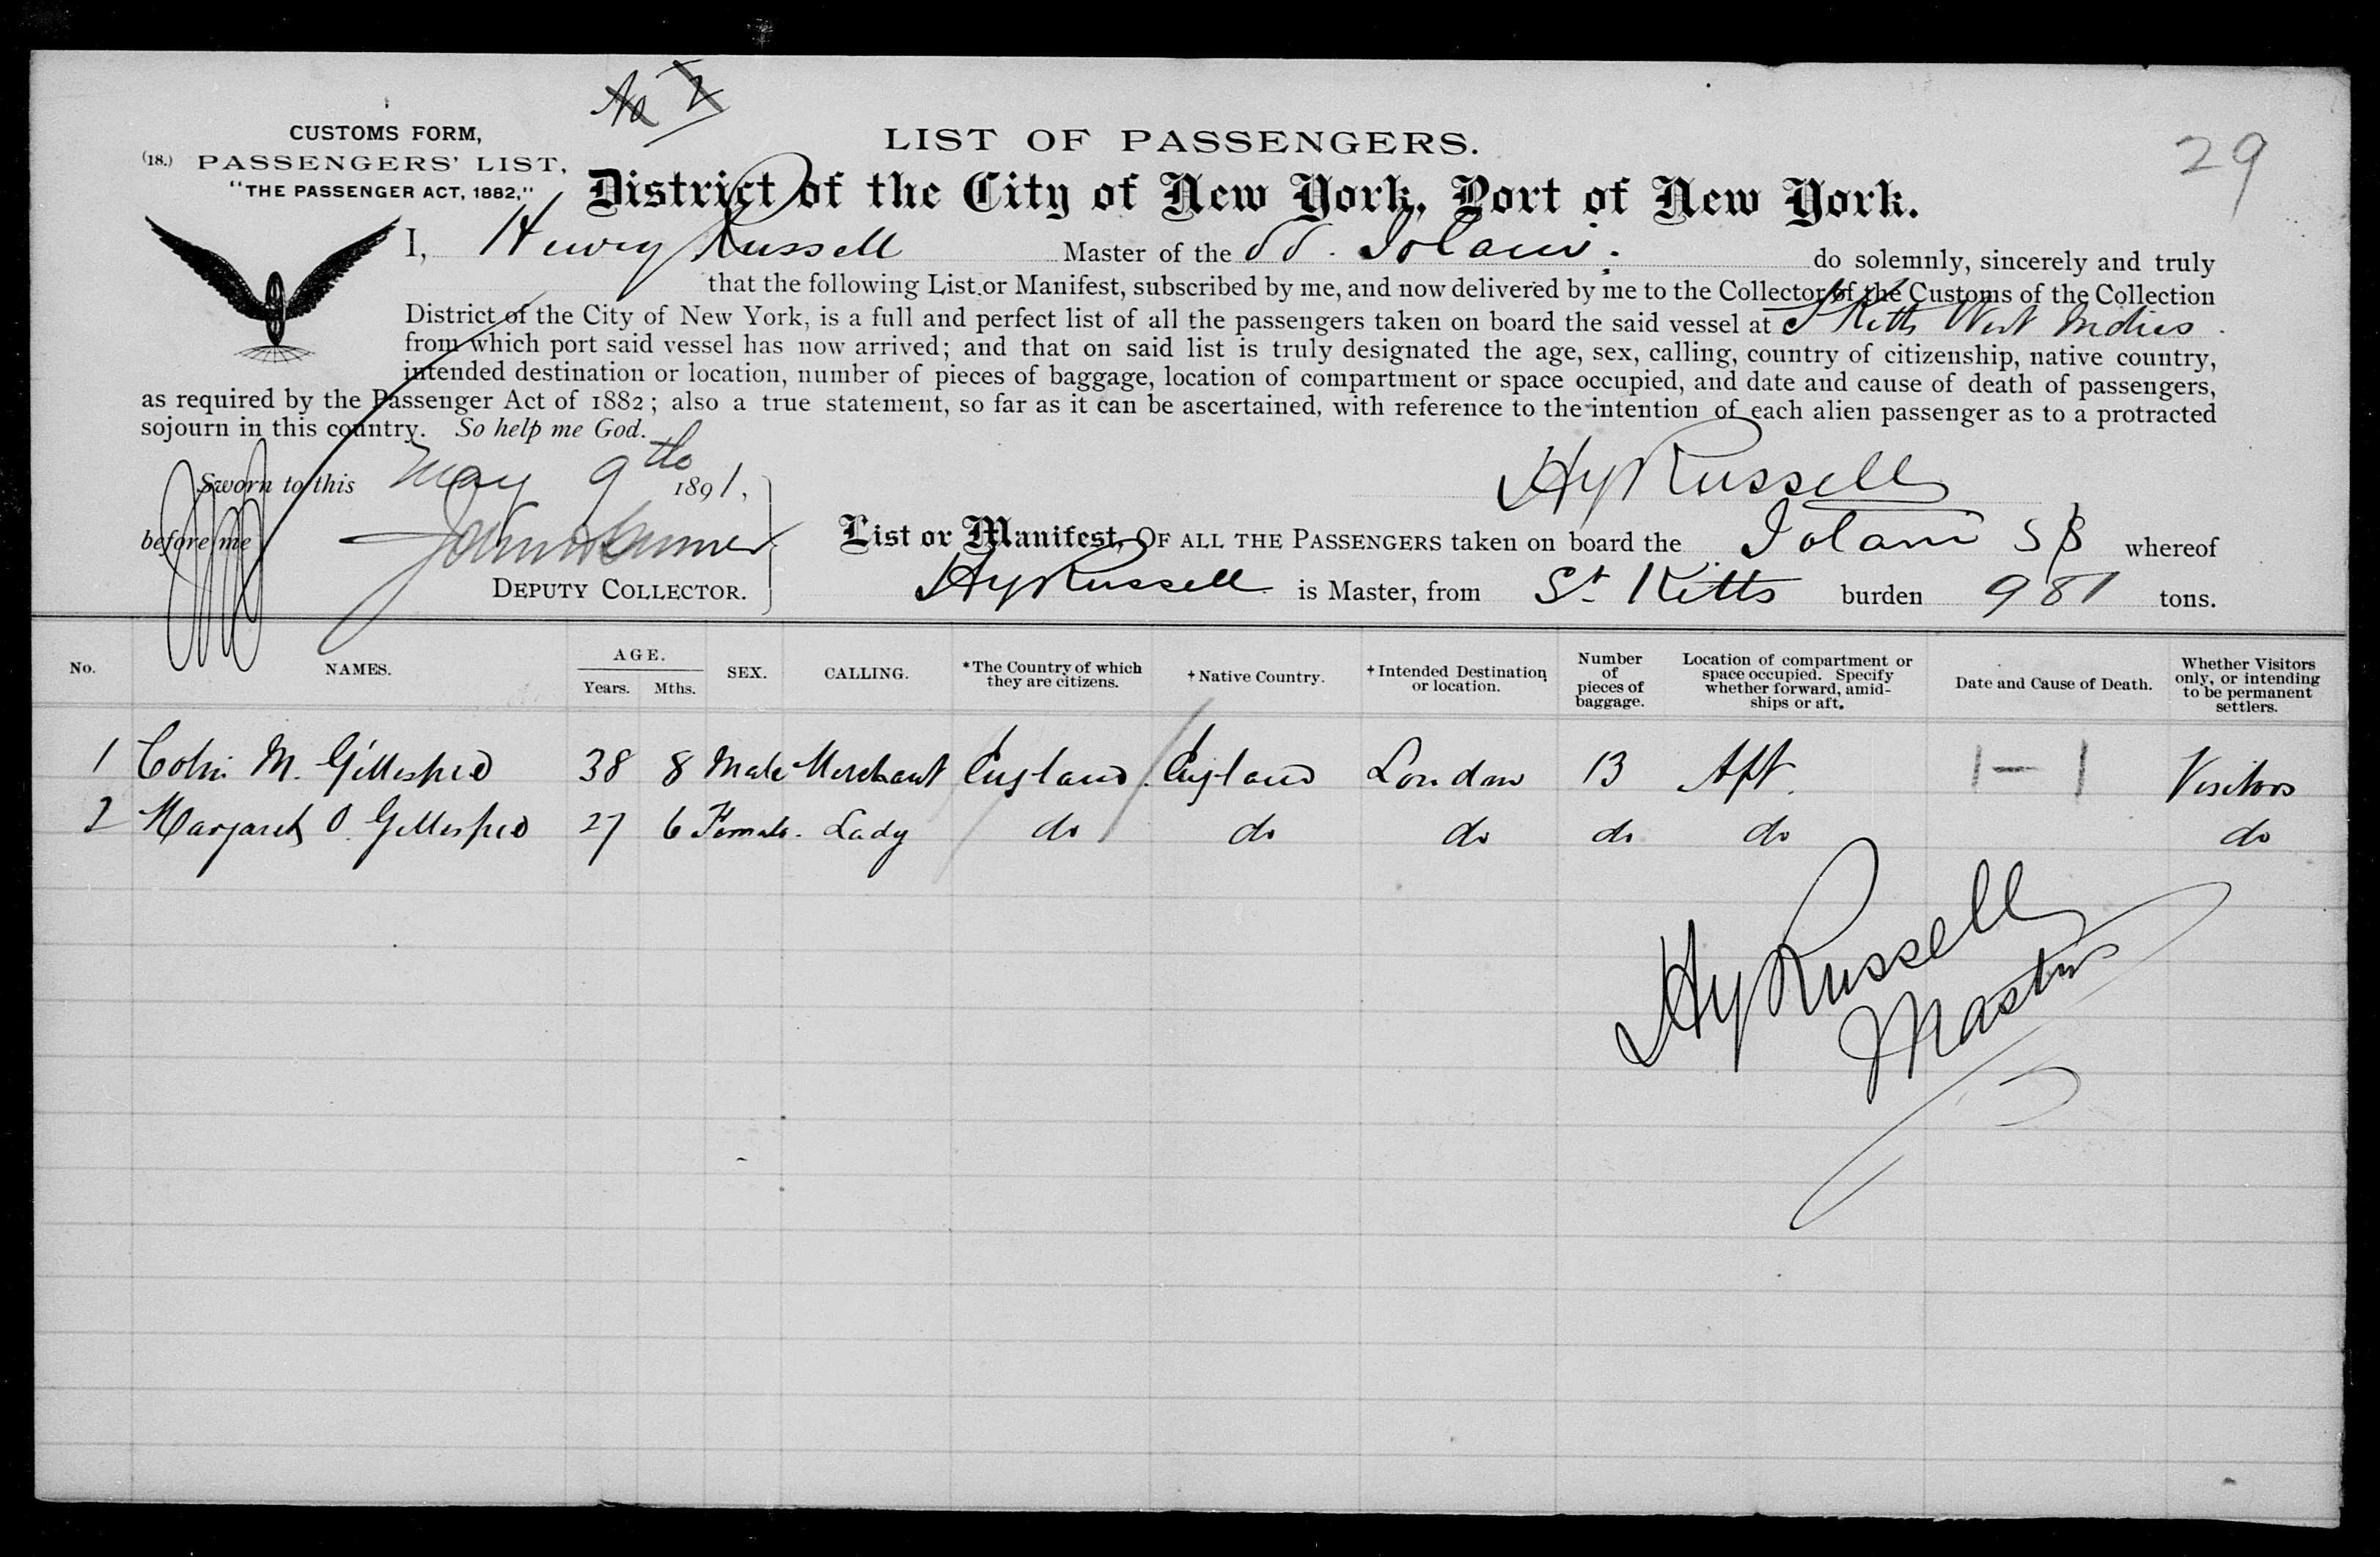 No 2
CUSTOMS FORM,
(18.) PASSENGERS' LIST,
"THE PASSENGER ACT, 1882,"
LIST OF PASSENGERS.
29
District of the City of New York, Port of New York.
I, Henry Russell Master of the SS. Iolani. do solemnly, sincerely and truly
that the following List or Manifest, subscribed by me, and now delivered by me to the Collector of the Customs of the Collection
District of the City of New York, is a full and perfect list of all the passengers taken on board the said vessel at St Kitts West Indies.
from which port said vessel has now arrived; and that on said list is truly designated the age, sex, calling, country of citizenship, native country,
intended destination or location, number of pieces of baggage, location of compartment or space occupied, and date and cause of death of passengers,
as required by the Passenger Act of 1882; also a true statement, so far as it can be ascertained, with reference to the intention of each alien passenger as to a protracted
sojourn in this country. So help me God.
Sworn to this May 9th 1891,
Hy Russell
before me
DEPUTY COLLECTOR.
List or Manifest, OF ALL THE PASSENGERS taken on board the Iolani SS whereof
Hy Russell is Master, from St Kitts burden 981 tons.
No. NAMES. AGE. Years. Mths. SEX. CALLING. *The Country of which they are citizens. †Native Country. †Intended Destination or location. Number of pieces of baggage. Location of compartment or space occupied. Specify whether forward, amidships or aft. Date and Cause of Death. Whether Visitors only, or intending to be permanent settlers.
1 Colin M. Gillespie 38 8 Male Merchant England England London 13 Aft. 1 — 1 Visitors
2 Margaret O. Gillespie 27 6 Female. Lady do do do do do do
Hy Russell
Master